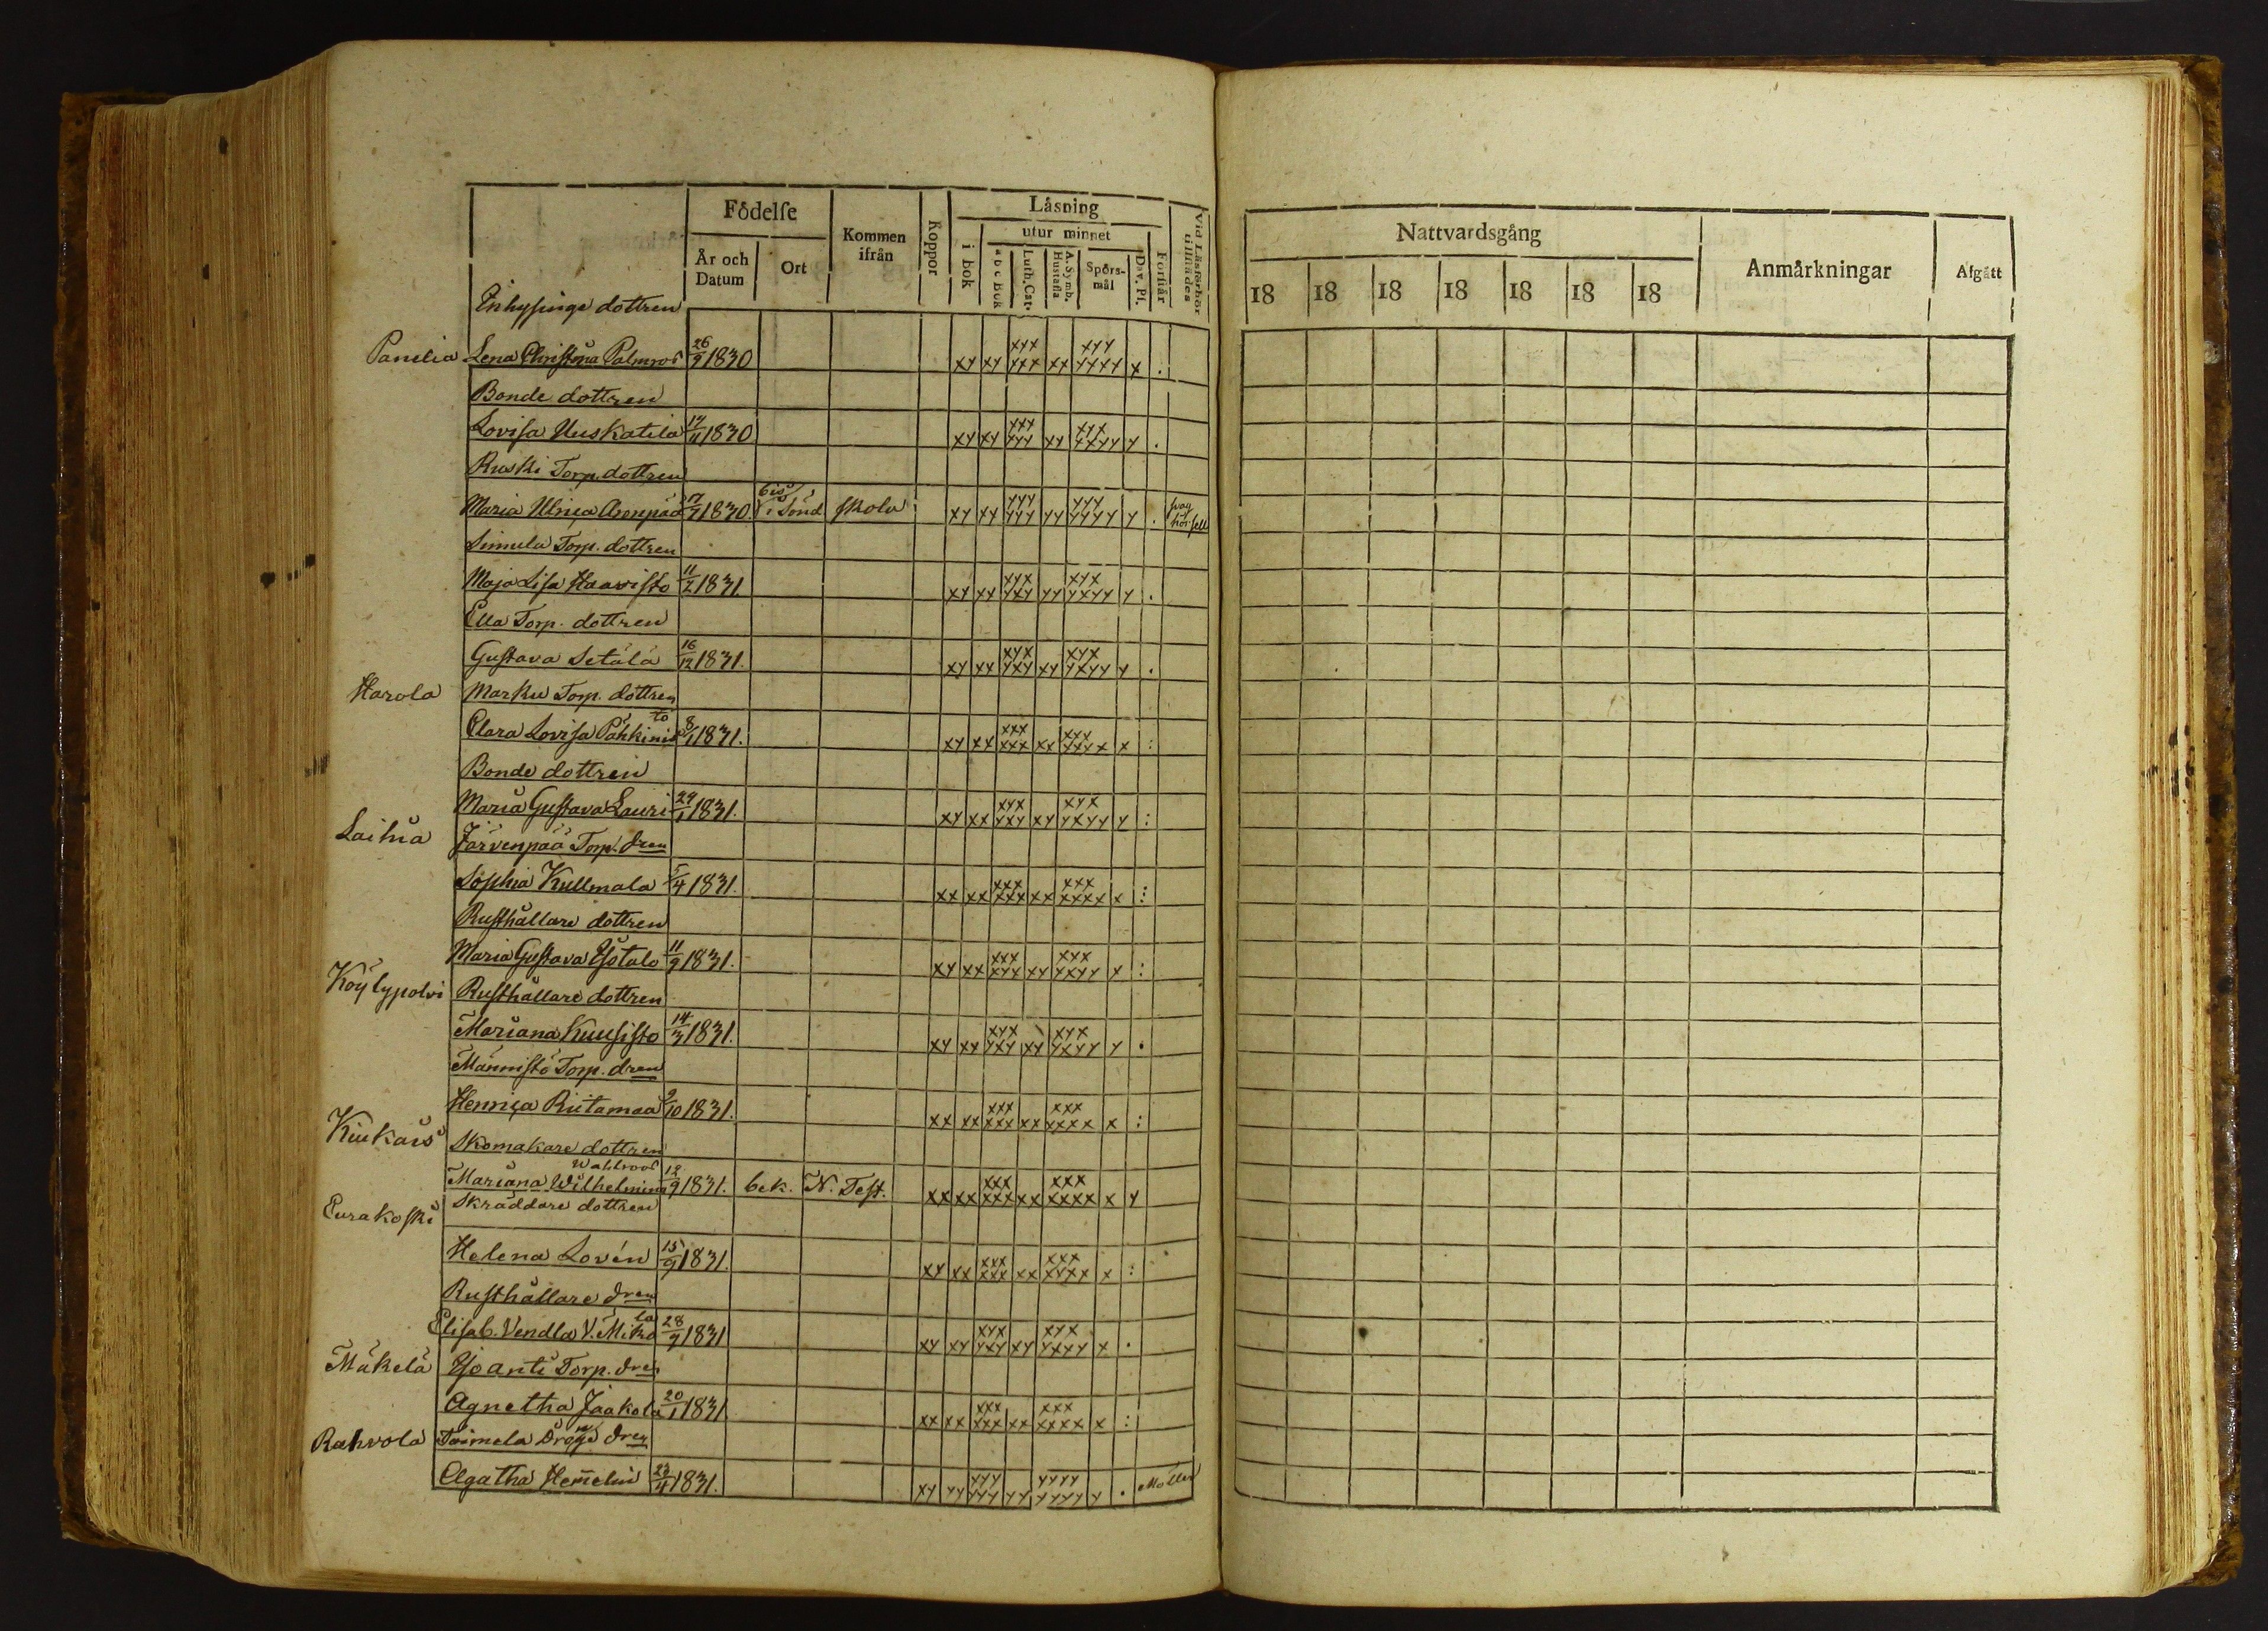 Födelse
Låsning
År och Datum
Ort
Kommen ifrån
Koppor
i bok
utur minnet
a b c bok
Luth. Cat.
A. Symb. Hustafla
Spörs-mål
Dav. Pl.
Forstår
Vid Läsförhör tillstädes
Nattvardsgång
Anmårkningar
Afgått
18 18 18 18 18 18 18
Inhysinge dottren
Panelia Lena Christina Palmros 26/9 1830 xy xy xyx xxx xx xyy yyyy x .
Bonde dottren
Lovisa Uuskatila 14/11 1830 xy xy xxy yyy xy xyx yxyy y .
Ruski Torp. dottren
Maria Ulrica Aronpää 1830. i Sönd skola xy xy yyy yyy yy yyy yyyy y .
Simula Torp. dottren
Maja Lisa Haavisto 11/2 1831 xy xy xyx yxy yy xyx yxyy y .
Ella Torp. dottren
Gustava Setälä 16/12 1831. xy xx xyx yxy xy xyx yxyy y .
Harola Marku Torp. dottren
Clara Lovisa Pähkinis to 8/1 1831. xy xx xxx xxx xx xxx xxyx x :
Bonde dottren
Maria Gustava Lauri 29/1 1831. xy xx xyx xxy xy xyx yxyy y :
Laihia Järvenpää Torp. dren
Sophia Kullmala 5/4 1831. xx xx xxx xxx xx xxx xxxx x :
Rusthållare dottren
Maria Gustava Isotalo 11/9 1831. xy xx xxx xyx xy xyx yxyy y :
Köylypolvi Rusthållare dottren
Mariana Kuusisto 14/3 1831. xy xy xyx yxy xy xyx yxyy y .
Männistö Torp. dren
Henrica Riitamaa 9/10 1831. xx xx xxx xxx xx xxx xxxx x :
Kiukais Skomakare dottren
Wahlroos
Mariana Wilhelmina 12/9 1831. bek. N. Test. xx xx xxx xxx xx xxx xxxx x y
Eurakoski Skräddare dottren
Helena Lovén 15/9 1831. xy xx xxx xxx xx xxx xyxx x :
Rusthållare dren
Elisab. Vendla V. Mika la 28/9 1831 xy xy xyx yxy xy xyx yxyy x .
Mäkelä Iso anti Torp. dren
Agnetha Jaakola 20/1 1831 xx xx xxx xxx xx xxx xxxx x :
Rahvola Toimela Dräng dren
Agatha Hemelin 23/4 1831. xy yy yyy yyy yy yyyy yyyy y .